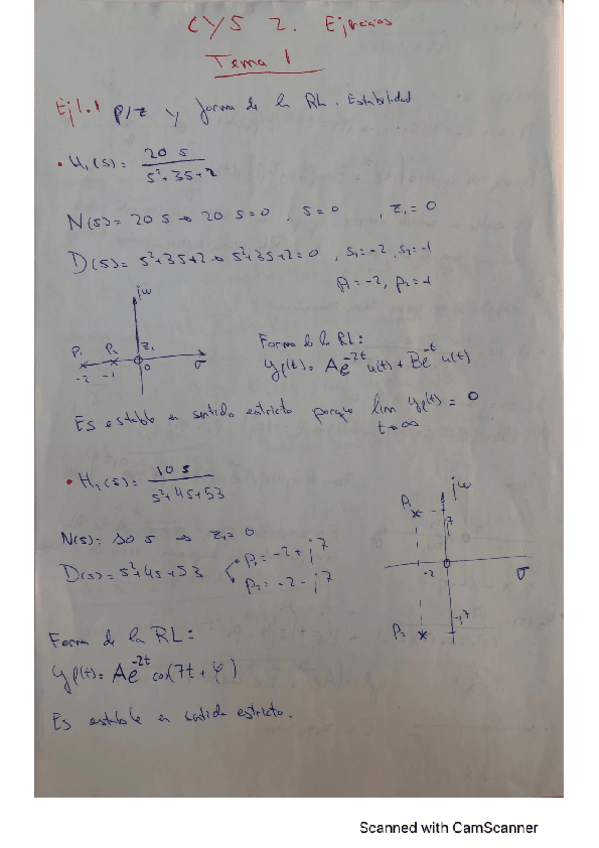 CYS 2. Ejercicios
Tema 1
Ej 1.1 P/Z y forma de la RL. Estabilidad
• H₁(s) = 20 s / s²+3s+2
N(s) = 20 s → 20 s = 0 , s = 0 , z₁ = 0
D(s) = s²+3s+2 → s²+3s+2 = 0 , s₁ = -2 , s₂ = -1
p₁ = -2 , p₂ = -1
jω
P₁ P₂ z₁
-2 -1 0 σ
Forma de la RL:
yₗ(t) = Ae^{-2t} u(t) + Be^{-t} u(t)
Es estable en sentido estricto porque lim yₗ(t) = 0
t→∞
• H₂(s) = 10 s / s²+4s+53
N(s) = 10 s → z₁ = 0
D(s) = s²+4s+53
p₁ = -2 + j7
p₂ = -2 - j7
jω
P₁
7
-2 σ
-7
P₂
Forma de la RL:
yₗ(t) = Ae^{-2t} cos(7t + φ)
Es estable en sentido estricto.
Scanned with CamScanner